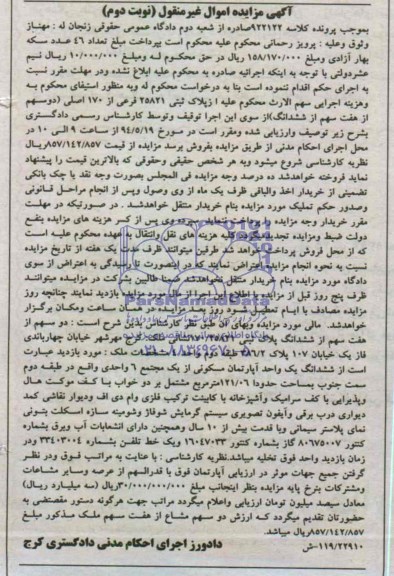 آگهی مزایده اموال غیرمنقول (نوبت دوم)
بموجب پرونده کلاسه ۹۲۲۱۲۲صادره از شعبه دوم دادگاه عمومی حقوقی زنجان له : مهناز
وثوق وعلیه : پرویز رحمانی محکوم علیه محکوم است بپرداخت مبلغ تعداد ۴۶ عدد سکه
بهار آزادی ومبلغ ۱۵۸/۱۷۰/۰۰۰ ریال در حق محکوم لـه ومبلـغ ۱۰/۰۰۰/۰۰۰ ریـال نیـم
عشردولتی با توجه به اینکه اجرائیه صادره به محکوم علیه ابلاغ شده ودر مهلت مقرر نسبت
به اجرای حکم اقدام ننموده است بنا به درخواست محکوم له وبه منظور استیفای محکوم به
وهزینه اجرایی سهم الارث محکوم علیه از پلاک ثبتی ۲۵۸۲۱ فرعی از ۱۷۰ اصلی (دوسـهم
از هفت سهم از ششدانگ)از سوی این اجرا توقیف وتوسط کارشناس رسمی دادگستری
بشرح زیر توصیف وارزیابی شده ومقرر است در مـورخ ۹۴/۵/۱۹ از ساعت ۹ الـی ۱۰ در
محل اجرای احکام مدنی از طریق مزایده بفروش برسد مزایده از قیمت ۸۵۷/۱۴۲/۸۵۷ریال
نظریه کارشناسی شروع میشود وبه هر شخص حقیقی وحقوقی که بالاترین قیمت را پیشنهاد
نماید فروخته خواهدشد ده درصد وجه مزایده فی المجلس بصورت وجه نقد یا چک بانکی
تضمینی از خریدار اخذ والباقی ظرف یک ماه از وی وصول وپس از انجام مراحل قـانونی
وصدور حکم تملیک مورد مزایده بنام خریدار منتقل خواهدشد . در صورتیکه در مهلـت
مقرر خریدار وجه مزایده را پرداخت ننماید سپرده وی پس از کسر هزینه های مزایده بنفع
دولت ضبط ومزایده تجدید میگردد کلیه هزینه های نقل وانتقال به عهده محکوم علیـه است
که از محل فروش پرداخت خواهد شد طرفین میتوانند ظرف مدت یک هفته از تاریخ مزایده
نسبت به نحوه انجام مزایده اعتراض نمایند که در اینصورت تا رسیدگی به اعتراض از سوی
دادگاه مورد مزایده بنام خریدار منتقل نخواهدشد ضمنا طالبین شرکت در مزایـده میتواننـد
ظرف پنج روز قبل از مزایده با اطلاع این اجرا از مال مورد مزایده بازدید نمایند چنانچه روز
مزایده مصادف با ایـام تعطیـل شـود روز بعـد مـزایـده در همـان سـاعت ومکـان بـرگزار
خواهدشد. مالی مورد مزایده وبهای آن طبق نظر کارشناس بدین شرح است : دو سـهم از
هفت سهم از ششدانگ پلاک ثبتی ۲۵۸۲۱/۱۷۰ مهرشهر خیابان چهارباندی
فاز یک خیابان ۱۰۷ پلاک ۵۶/۲ طبقه دوم واحد مشخصات ملک : مورد بازدید عبارت
است از ششدانگ یک واحد آپارتمان مسکونی از یک مجتمع ۶ واحدی واقع در طبقـه دوم
سمت جنوب بمساحت حدودا ۱۲۱/۰۶مترمربع مشتمل بر دو خواب بـا کـف موکـت هـال
وپذیرایی با کف سرامیک وآشپزخانه با کابینت ترکیب فلزی وام دی اف ودیوار نقاشی کمد
دیواری درب برقی وآیفون تصویری سیستم گرمایش شوفاژ وشومینه سازه اسکلت بتـونی
نمای پلاستر سیمانی وبا قدمت بیش از ۱۰ سال وهمچنین دارای انشعابات آب وبرق بشماره
کنتور ۸۰۶۷۵۰۰۷ گاز بشماره کنتور ۱۶۰۴۷۰۳۳ ویک خط تلفـن بشمـاره ۳۳۴۰۳۰۰۴ ودر
زمان بازدید واحد فوق تخلیه میباشد.نظریه کارشناسی : با عنایت به مراتب فـوق ودر نظـر
گرفتن جمیع جهات موثر در ارزیابی آپارتمان فوق با قدرالسهم از عرصه وسایر مشاعات
ومشترکات بنرخ پایه مزایده بنظر اینجانب مبلغ ۳/۰۰۰/۰۰۰/۰۰۰ریال (سه میلیارد ریال)
معادل سیصد میلیون تومان ارزیابی واعلام میگردد مراتب جهت هرگونه دستور مقتضـی به
حضورتان تقدیم میگردد که ارزش دو سـهم مشاع از هفت سهم ملـک مـذکور مبلـغ
۸۵۷/۱۴۲/۸۵۷ریال میباشد.
۱۱۹/۲۲۹۱۰-ش دادورز اجرای احکام مدنی دادگستری کرج
ParsNamadData